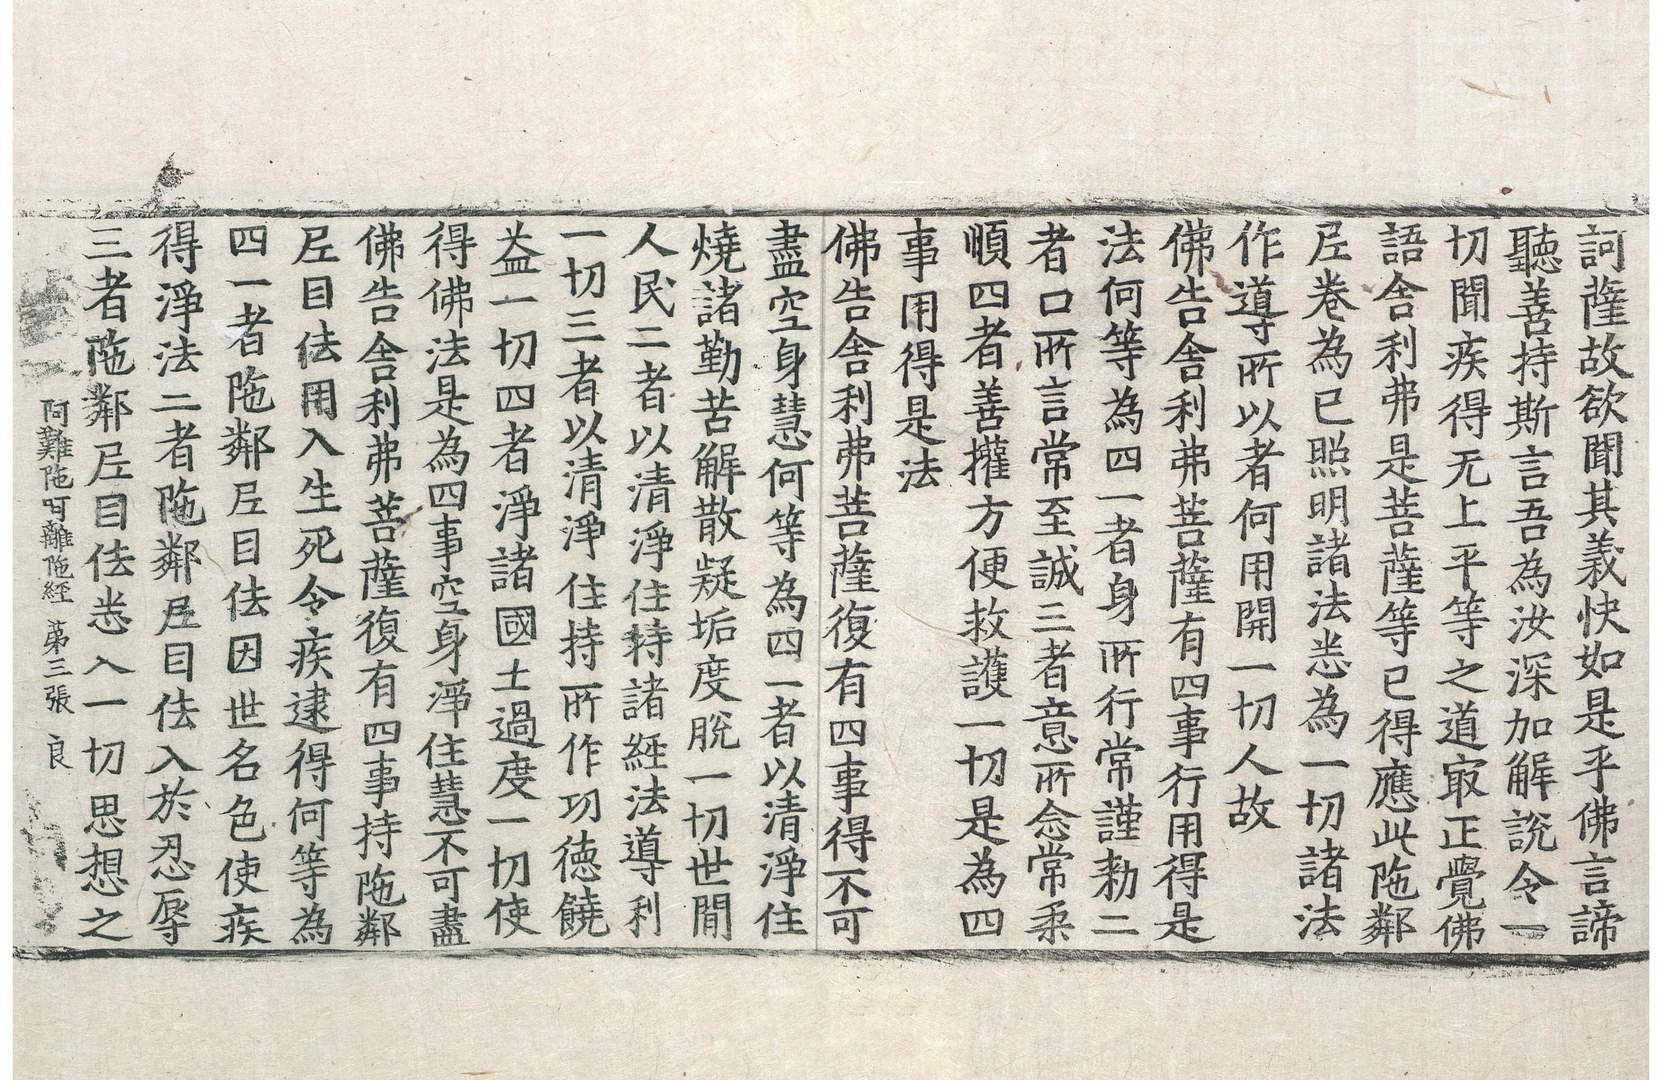 訶薩故欲聞其義快如是乎佛言諦
聽善持斯言吾為汝深加解說令一
切聞疾得无上平等之道㝡正覺佛
語舍利弗是菩薩等已得應此陁鄰
𡰱卷為已照明諸法悉為一切諸法
作導所以者何用開一切人故
佛告舍利弗菩薩有四事行用得是
法何等為四一者身所行常謹勑二
者口所言常至誠三者意所念常柔
順四者善攉方便救護一切是為四
事用得是法
佛告舍利弗菩薩復有四事得不可
盡空身慧何等為四一者以清淨住
燒諸勤苦解散疑垢度脫一切世閒
人民二者以清淨住持諸經法導利
一切三者以清淨住持所作功德饒
益一切四者淨諸國土過度一切使
得佛法是為四事空身淨住慧不可盡
佛告舍利弗菩薩復有四事持陁鄰
𡰱目佉用入生死令疾逮得何等為
四一者陁鄰𡰱目佉因世名色使疾
得淨法二者陁鄰𡰱目佉入於忍辱
三者陁鄰𡰱目佉悉入一切思想之
阿難陁目佉離陁經 苐三張 良